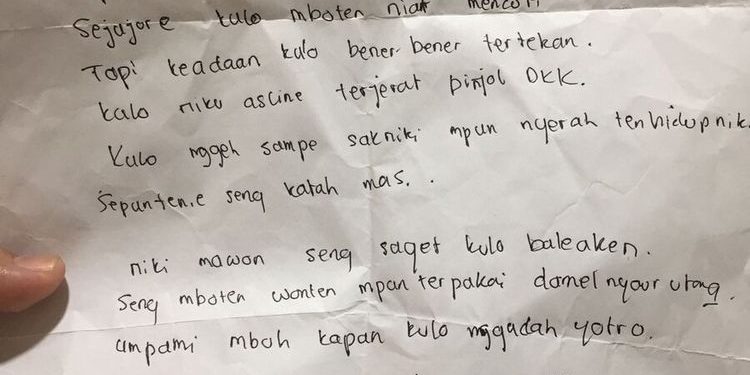 Sejajore kulo mboten niat mencuri
Tapi keadaan kulo bener-bener tertekan.
Kalo niku asline terjerat pinjol OKK.
Kulo nggeh sampe sakniki mpun nyerah ten hidup nik.
Sepunten.e seng katah mas. .
niki mawon seng saget kulo baleaken.
Seng mboten wonten mpan terpakai damel nyaur utang.
umpami mboh kapan kulo nggadah yotro.